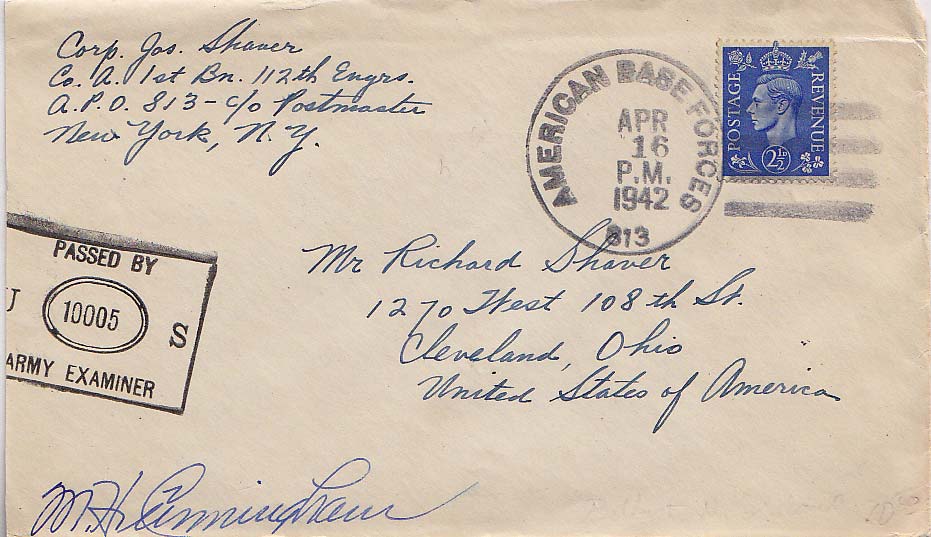 Corp. Jas. Shaver
Co. A. 1st Bn. 112th Engrs.
A.P.O. 813 - c/o Postmaster
New York, N.Y.
AMERICAN BASE FORCES
APR
16
P.M.
1942
813
POSTAGE REVENUE
2½D
PASSED BY
U 10005 S
ARMY EXAMINER
Mr Richard Shaver
1270 West 108th St.
Cleveland, Ohio
United States of America
M.H. Cunningham